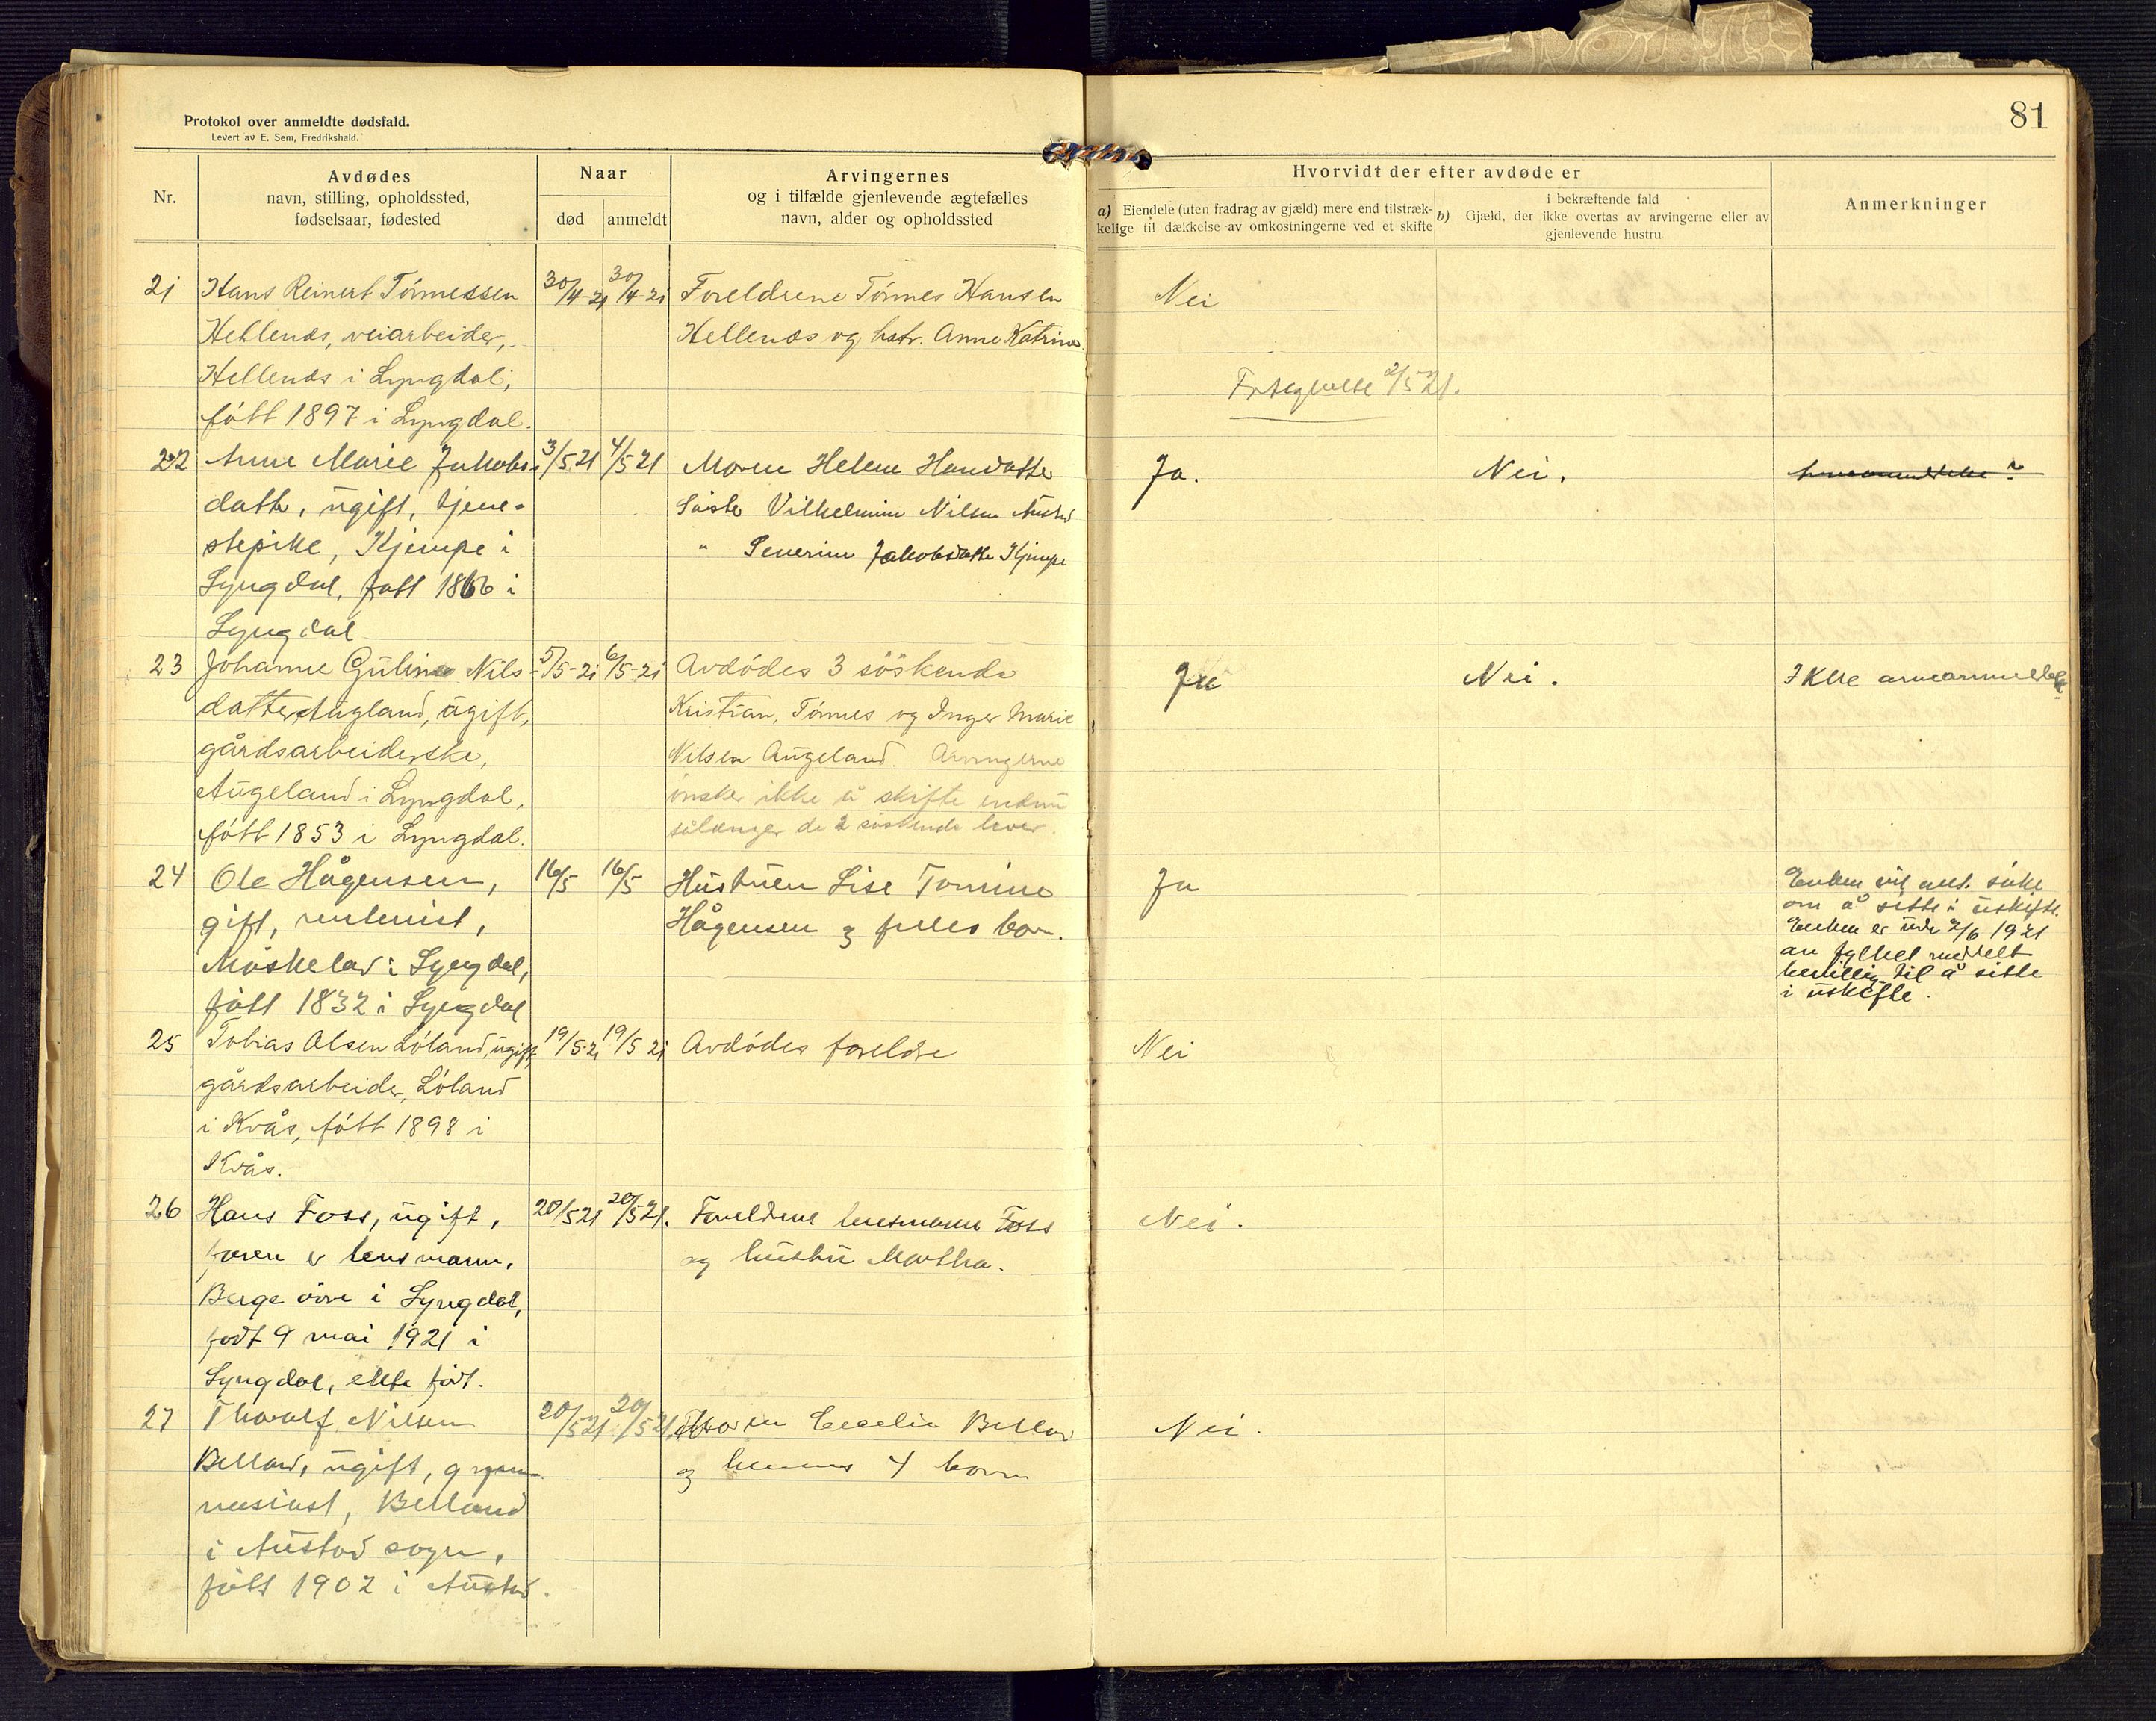 Protokol over anmeldte dødsfald.
Levert av E. Sem, Fredrikshald.
81
Nr.
Avdødes
navn, stilling, opholdssted,
fødselsaar, fødested
Naar
død
anmeldt
Arvingernes
og i tilfælde gjenlevende ægtefælles
navn, alder og opholdssted
Hvorvidt der efter avdøde er
a) Eiendele (uten fradrag av gjæld) mere end tilstræk-
kelige til dækkelse av omkostningerne ved et skifte
i bekræftende fald
b) Gjæld, der ikke overtas av arvingerne eller av
gjenlevende hustru
Anmerkninger
21 Hans Reinert Tönnessen 30/4-21 30/4-21 Foreldrene Tönnes Hansen Nei
Hellenes, veiarbeider, Hellenes og hstr. Anne Katrine.
Hellenes i Lyngdal, 2/5 21.
fött 1897 i Lyngdal.
22 Anne Marie Jakobs- 3/5 21 4/5 21 Moren Helene Ja. Nei.
datter, ugift, tjene- Söster Vilhelmine Nilsen Austad
stepike, Kjempe i " Severine Jakobsdatter Kjempe
Lyngdal, fött 1866 i
Lyngdal
23 Johanne Guline Nils- 5/5-21 6/5-21 Avdödes 3 söskende Ja Nei. Ikke
datter Augland, ugift, Kristian, Tönnes og Inger Marie
gårdsarbeiderske, Nilsen Augeland. Arvingerne
Augeland i Lyngdal, önsker ikke å skifte endnu
fött 1853 i Lyngdal. sålænge de 2 söskende lever.
24 Ole Hågensen, 16/5 16/5 Hustruen Lise Tomine Ja Enken vil söke
gift, Hågensen og felles born. om å sitte i uskifte.
i Lyngdal, Enken er under 7/6 1921
fött 1832 i Lyngdal av fylket meddelt
bevilling til å sitte
i uskifte.
25 Tobias Olsen Löland, ugift, 19/5-21 19/5 21 Avdödes foreldre Nei
gårdsarbeider, Löland
i Kvås, fött 1898 i
Kvås.
26 Hans Foss, ugift, 20/5 21 20/5 21. Foreldrene lensmann Foss Nei.
faren er lensmann, og hustru Martha.
Berge övre i Lyngdal,
födt 9 mai 1921 i
Lyngdal, ekte födt.
27 Thoralf Nilsen 20/5 21 20/5 21. Moren Cecelie Belland Nei.
Belland, ugift, gym- og hennes 4 born
nasiast, Belland
i Austad sogn,
fött 1902 i Austad.